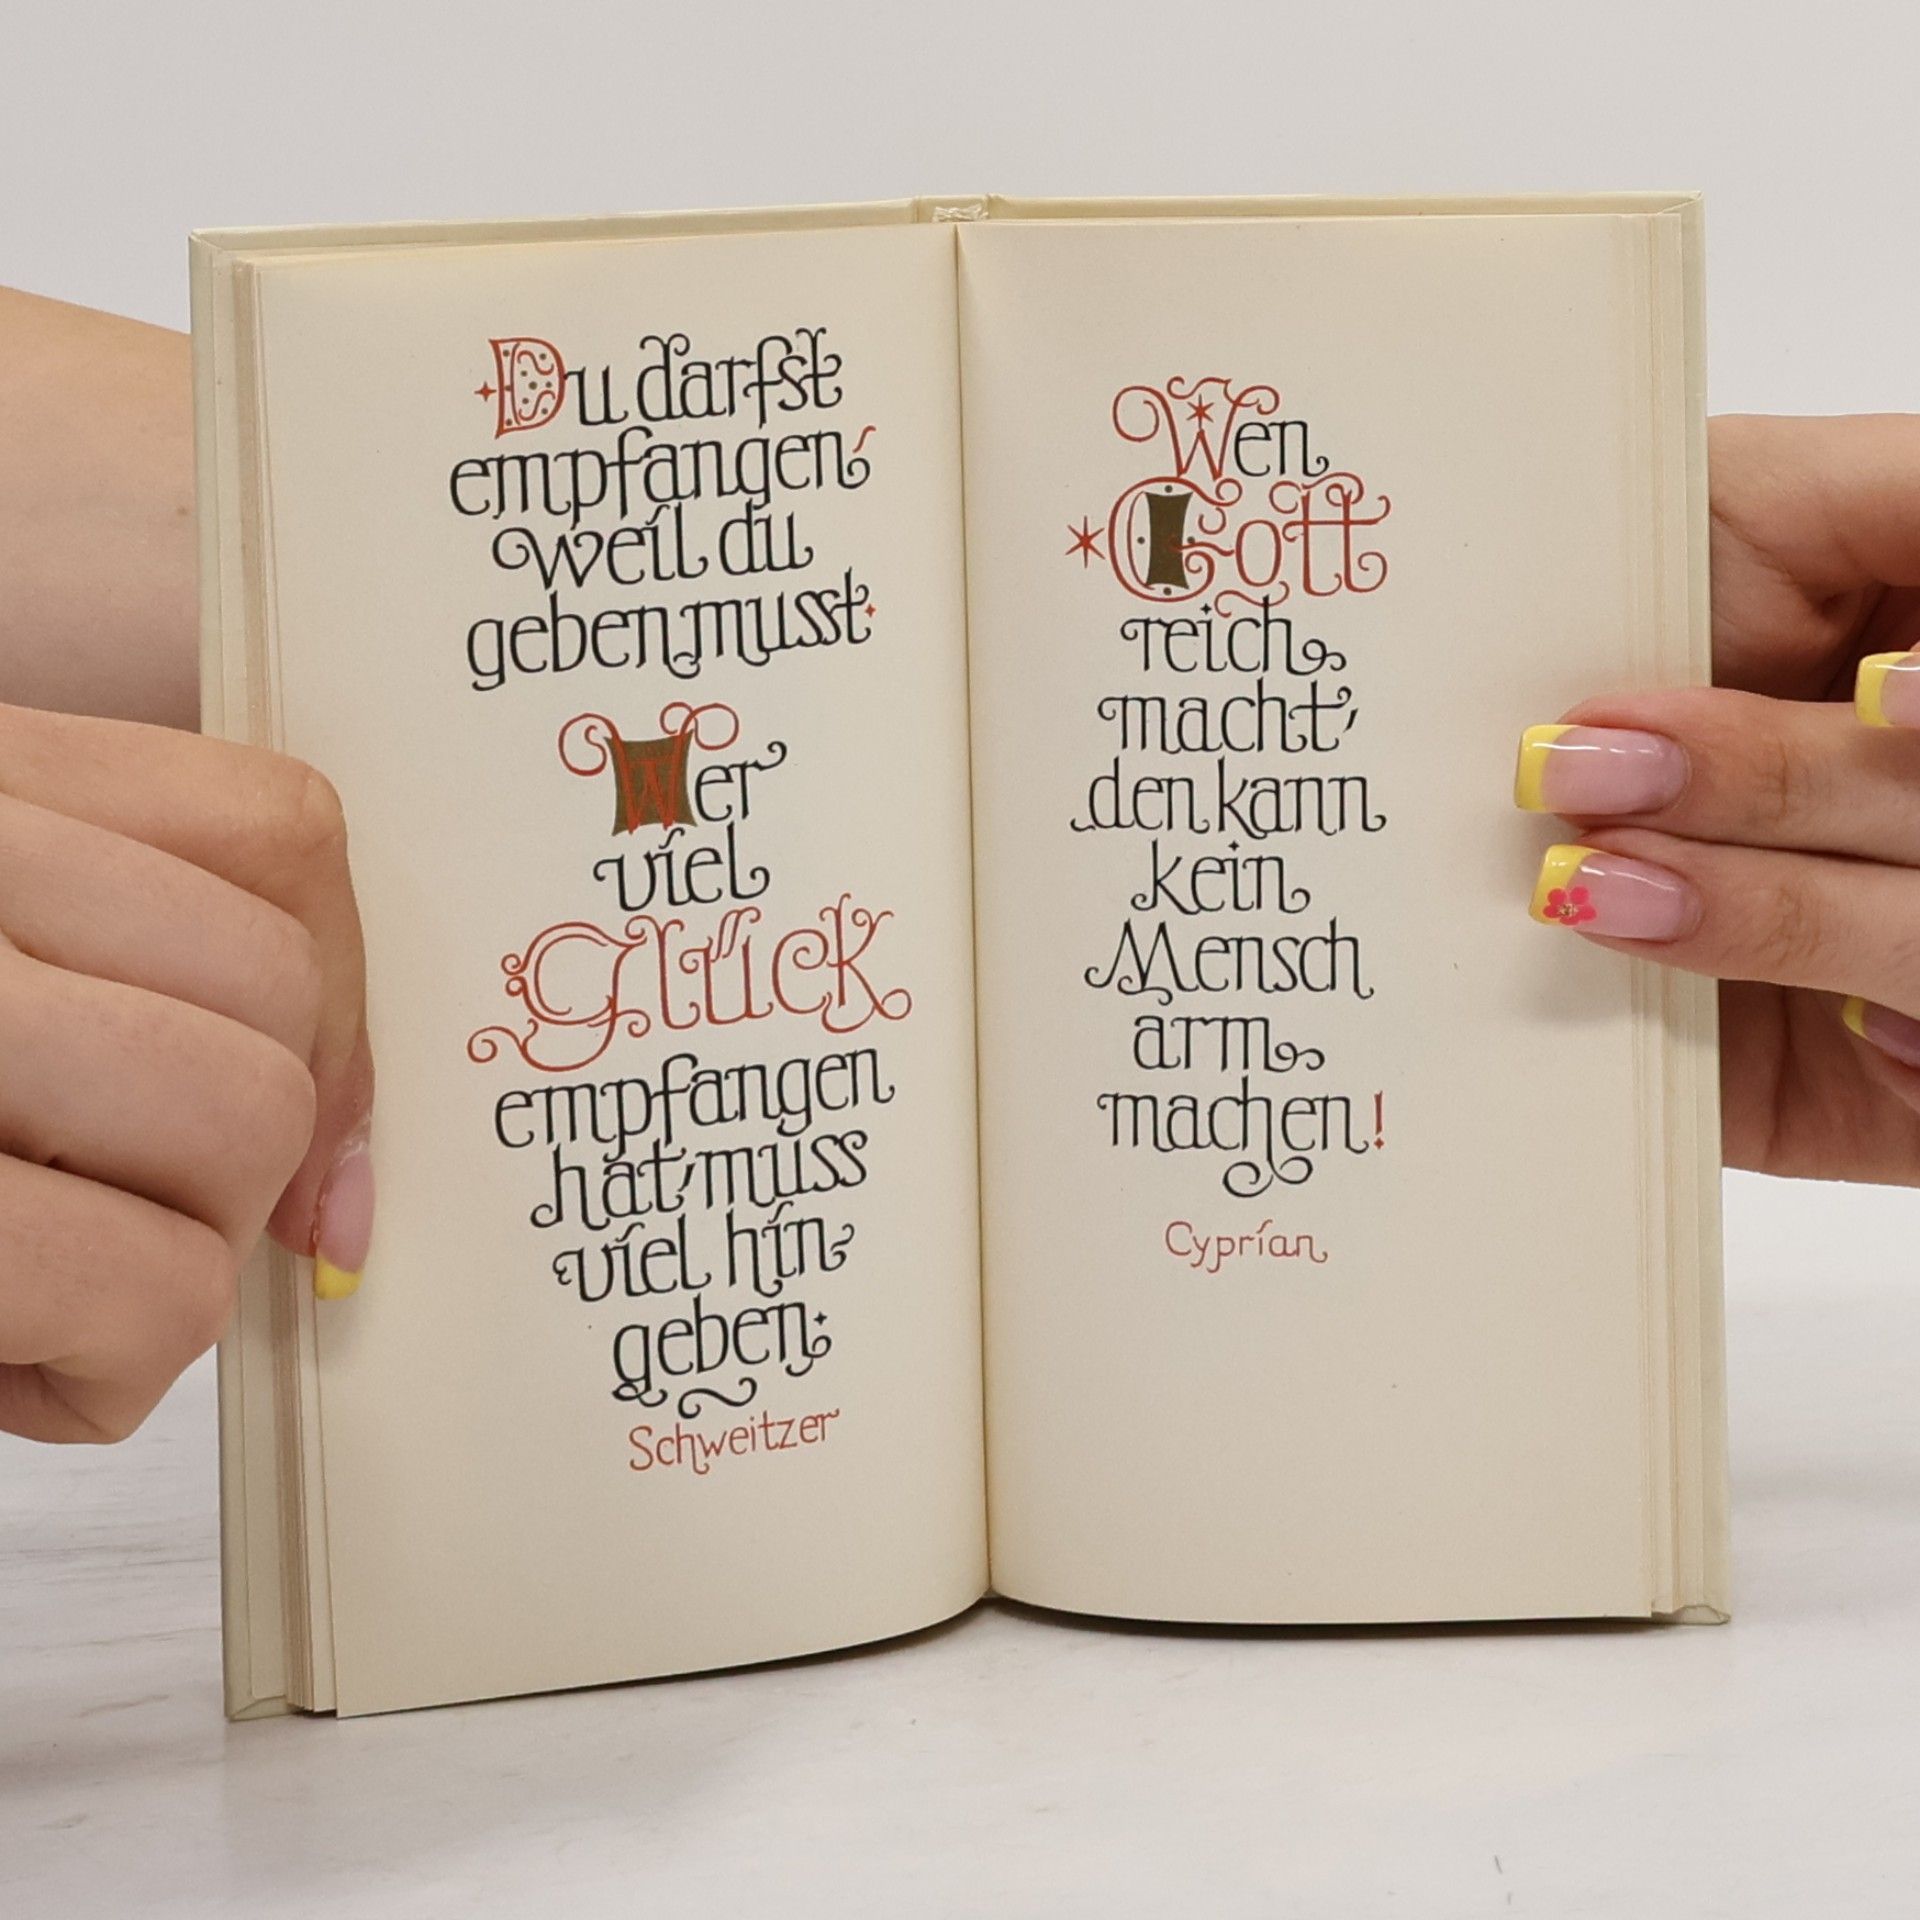 Du darfst
empfangen,
weil du
geben musst.
Wer
viel
Glück
empfangen
hat, muss
viel hin
geben.
Schweitzer
Wen
Gott
reich
macht,
den kann
kein
Mensch
arm
machen!
Cyprian